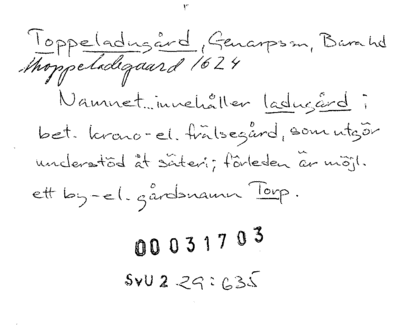 Toppeladugård, Genarps sn, Bara hd
thoppeladegaard 1624
Namnet... innehåller ladugård i
bet. krono- el. frälsegård, som utgör
understöd åt säteri; förleden är möjl.
ett by- el. gårdsnamn Torp.
00031703
SvU 2 29:635